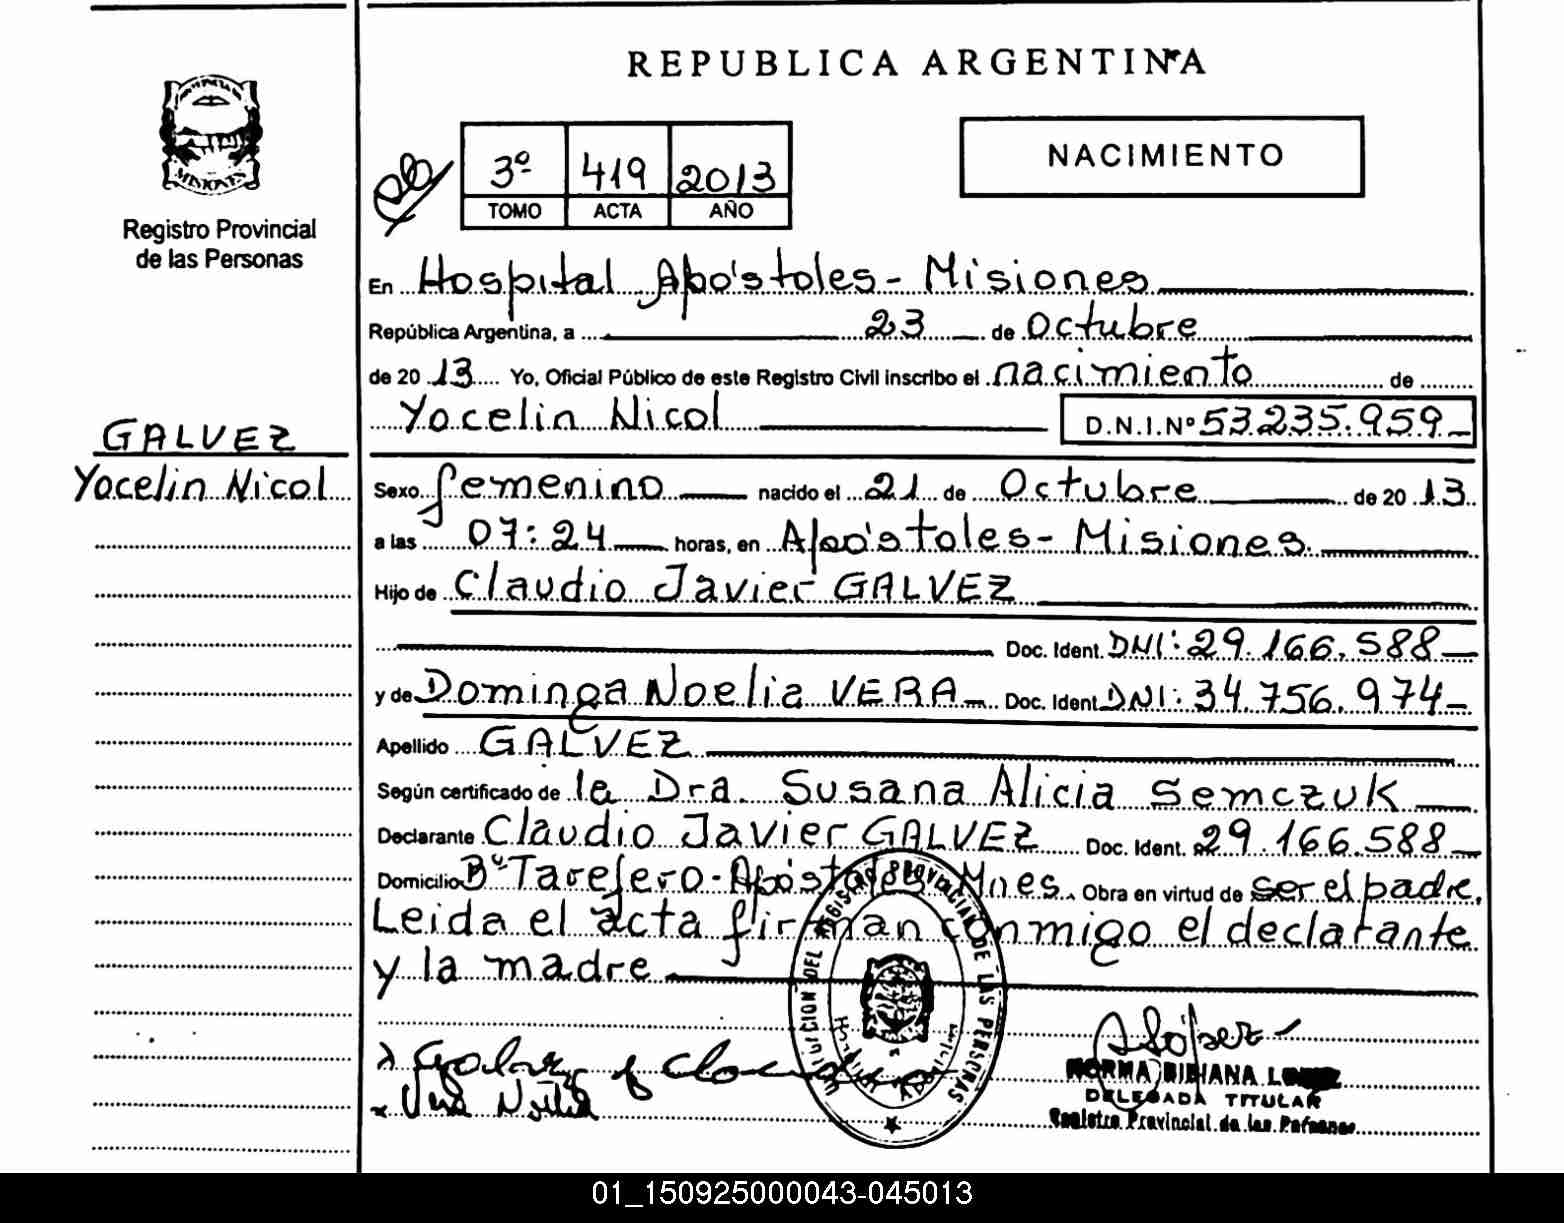 REPUBLICA ARGENTINA
MISIONES
Registro Provincial
de las Personas
3º 419 2013
TOMO ACTA AÑO
NACIMIENTO
En Hospital Apóstoles - Misiones
República Argentina, a 23 de Octubre
de 20 13 Yo, Oficial Público de este Registro Civil inscribo el nacimiento de
Yocelin Nicol D.N.I.Nº 53.235.959
GALVEZ
Yocelin Nicol
Sexo femenino nacido el 21 de Octubre de 20 13
a las 07:24 horas, en Apóstoles - Misiones.
Hijo de Claudio Javier GALVEZ
Doc. Ident. DNI: 29.166.588
y de Dominga Noelia VERA Doc. Ident. DNI: 34.756.974
Apellido GALVEZ
Según certificado de la Dra. Susana Alicia Semczuk
Declarante Claudio Javier GALVEZ Doc. Ident. 29.166.588
Domicilio Bº Tarefero - Apóstoles Mnes. Obra en virtud de ser el padre.
Leida el acta firman conmigo el declarante
y la madre
REGISTRO PROVINCIAL DE LAS PERSONAS
Galvez Claudio
Vera Noelia
NORMA BIBIANA
DELEGADA TITULAR
Registro Provincial de las Personas
01_150925000043-045013